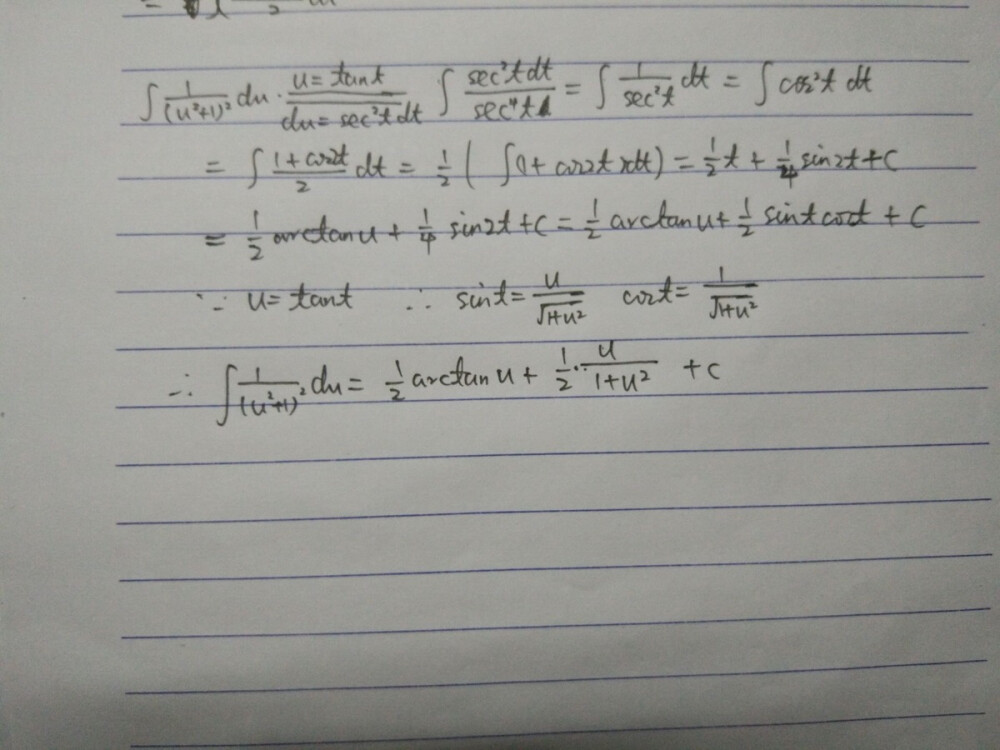 ∫ 1/(u²+1)² du · u=tant / du=sec²t dt ∫ sec²t dt / sec⁴t = ∫ 1/sec²t dt = ∫ cos²t dt
= ∫ (1+cos2t)/2 dt = 1/2 ( ∫(1+cos2t)dt ) = 1/2 t + 1/4 sin2t + C
= 1/2 arctanu + 1/4 sin2t + C = 1/2 arctanu + 1/2 sintcost + C
∵ u=tant ∴ sint = u/√(1+u²) cost = 1/√(1+u²)
∴ ∫ 1/(u²+1)² du = 1/2 arctanu + 1/2 · u/(1+u²) + C